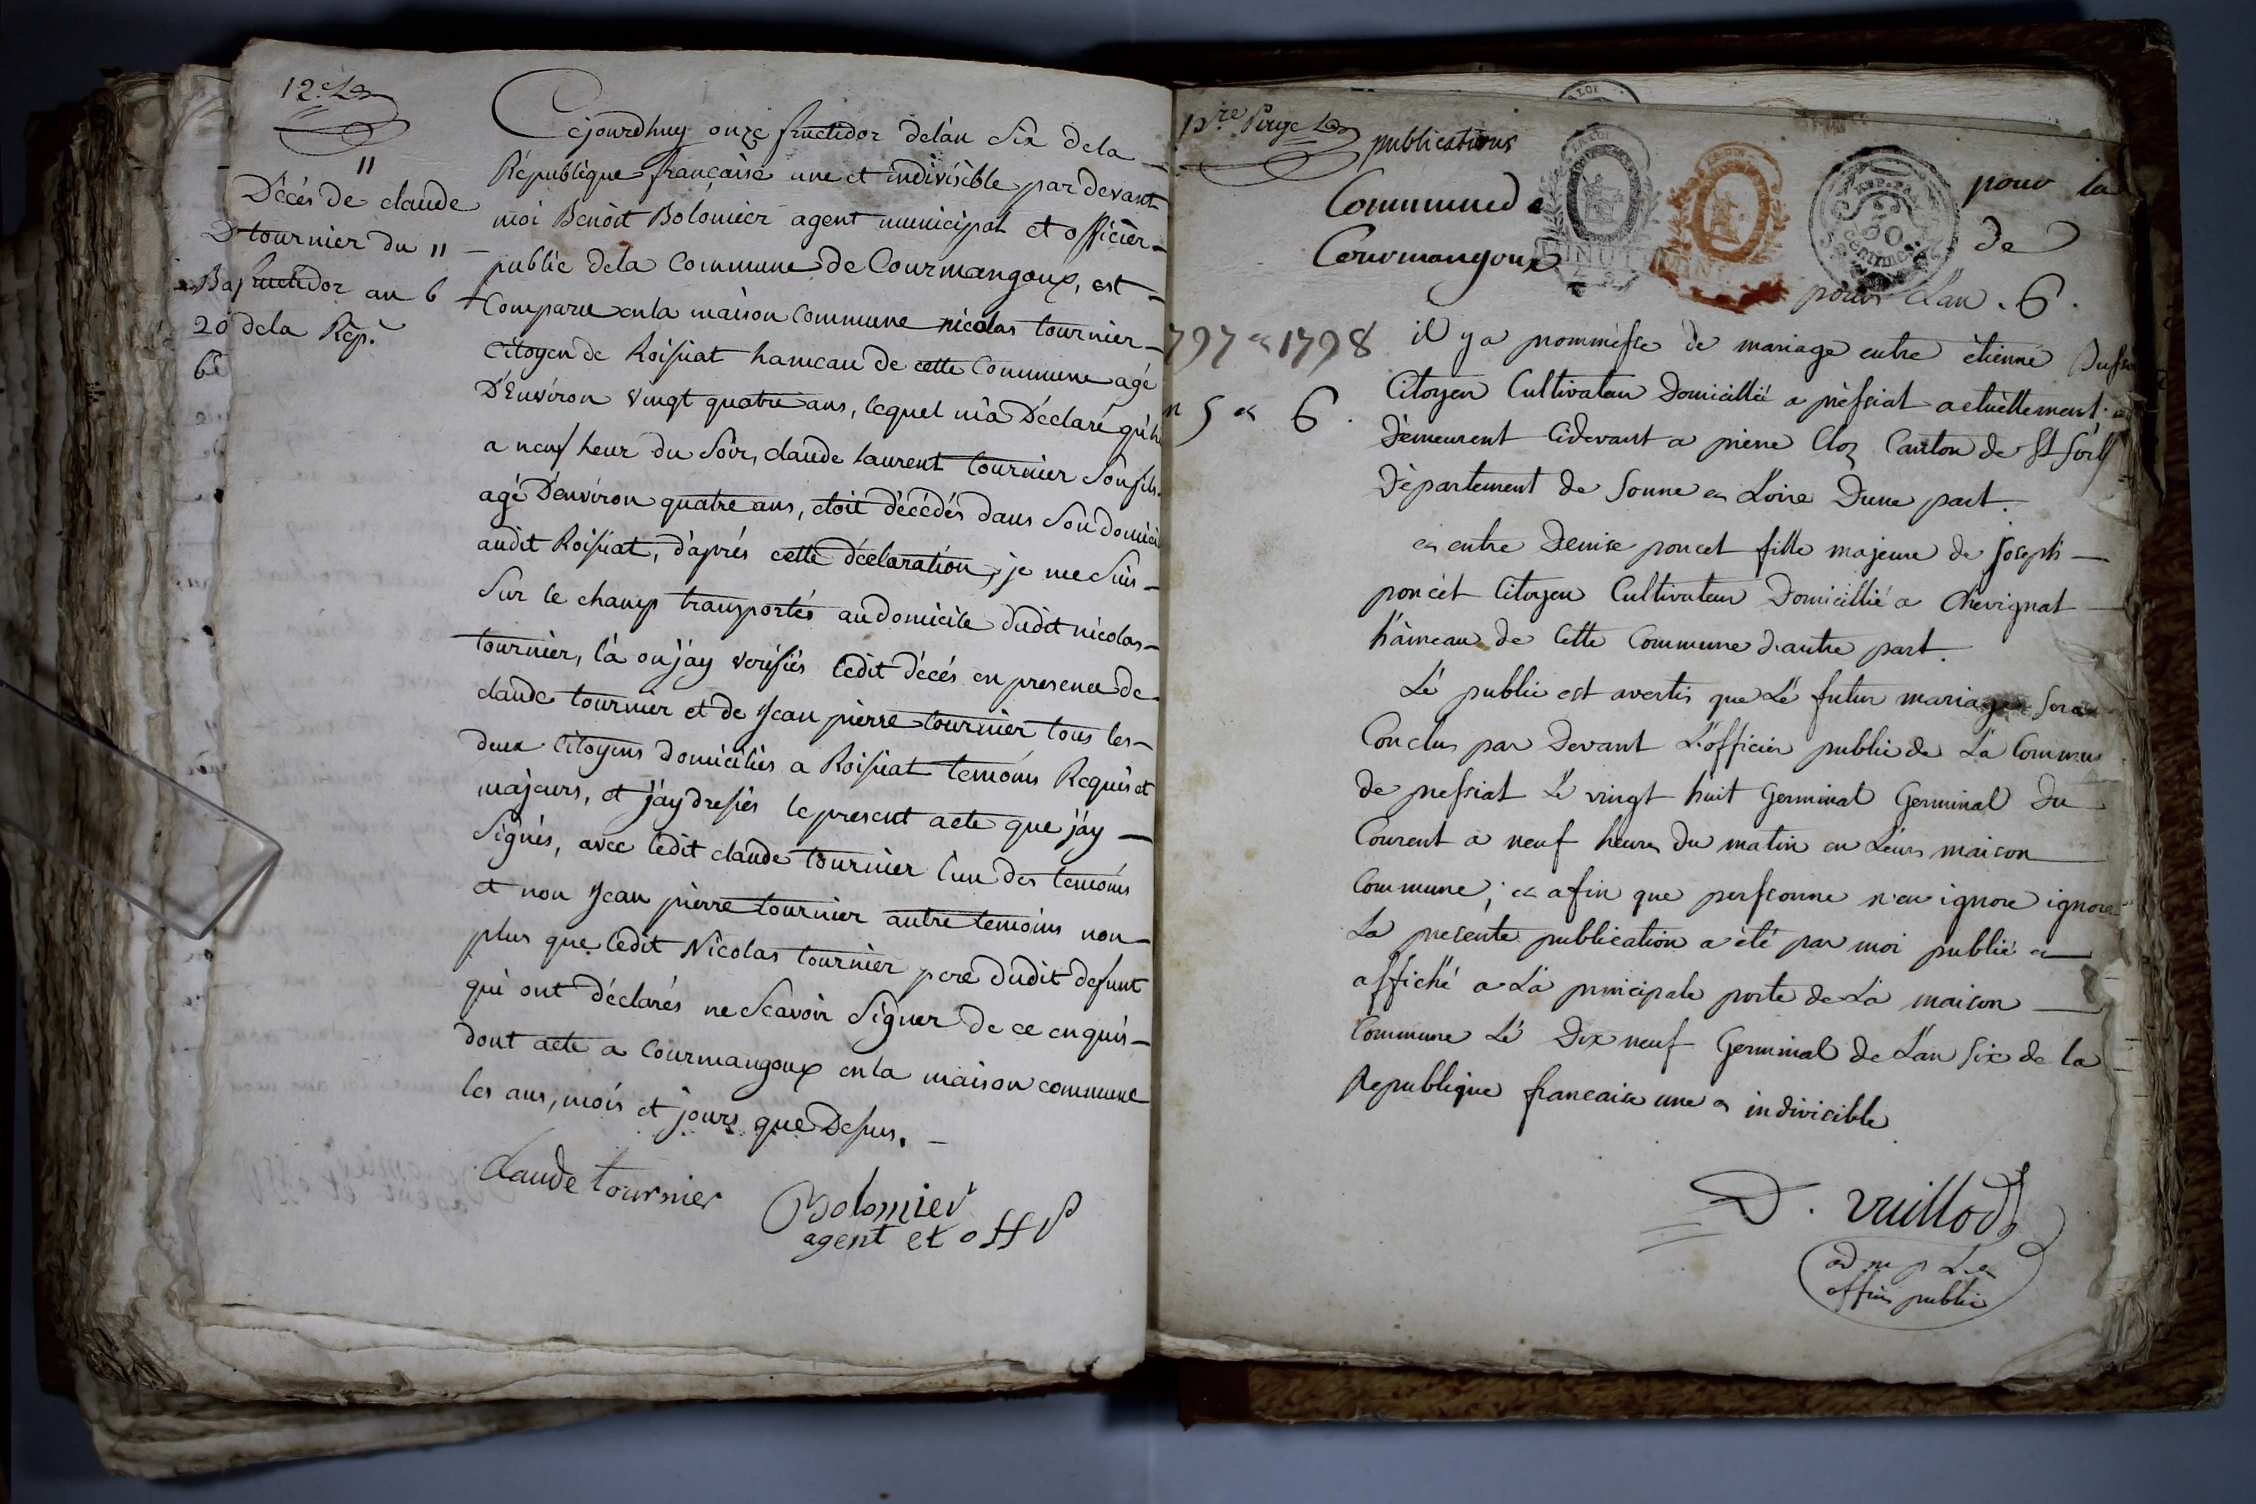 12.e
11
Décés de claude
tournier du 11
fructidor an 6
dela Rép.
Ba
20
6e
Cejourdhuy onze fructidor delan six dela
République française une et indivisible par devant
moi Benoit Bolomier agent municipal et officier
public dela Commune de Courmangoux, est
Comparu enla maison Commune nicolas tournier
Citoyen de Roissiat hameau de cette Commune agé
D'Environ vingt quatre ans, lequel m'a Déclaré qu'hi
a neuf heur du Soir, claude laurent tournier Son fils
agé D'environ quatre ans, etoit décédés dans Son domici
audit Roissiat, d'aprés cette déclaration, je me Suis
Sur le champ transportés au domicile dudit nicolas
tournier, là ou j'ay verifiés ledit décés en presence de
claude tournier et de Jean pierre tournier tous les
deux Citoyens domiciliés a Roissiat temoins Requis et
majeurs, et j'ay dressés le present acte que j'ay
Signés, avec ledit claude tournier l'un des temoins
et non Jean pierre tournier autre temoins non
plus que ledit Nicolas tournier pere dudit defunt
qui ont déclarés ne Scavoir Signer de ce enquis
dont acte a Courmangoux enla maison commune
les ans, mois et jours que Dessus.
Claude tournier
Bolomier
agent et off p
1re
publications
pour la
Commune de
de
Courmangoux
pour l'an 6.
797 et 1798
n 5 et 6.
LOI
50
Centimes
il y a prommesse de mariage entre ètienne
Citoyen Cultivateur Domicillié a prèssiat actuèllement
Dèmeurent Cidevant a pierre Cloz Canton de St Sorl
Dèpartement de Sonne et Loire Dune part.
et entre Denise poncet fille majeure de Joseph
poncèt Citoyen Cultivateur Domicillié a Chevignat
hàmeau de Cette Commune d'autre part.
Lé public est avertis que Lé futur mariage Sera
Conclus par Devant L'officier public de La Commu
de pressiat Le vingt huit Germinal Germinal du
Courent a neuf heures Du matin en Leurs maison
Commune, et afin que perssonne n'en ignore ignore
La presente publication a été par moi publié et
affiché a La principale porte de La maison
Commune Lé Dix neuf Germinal de Lan Six de la
Republique francaise une et indivicible
D. vuillod
ad m p L et
officier public